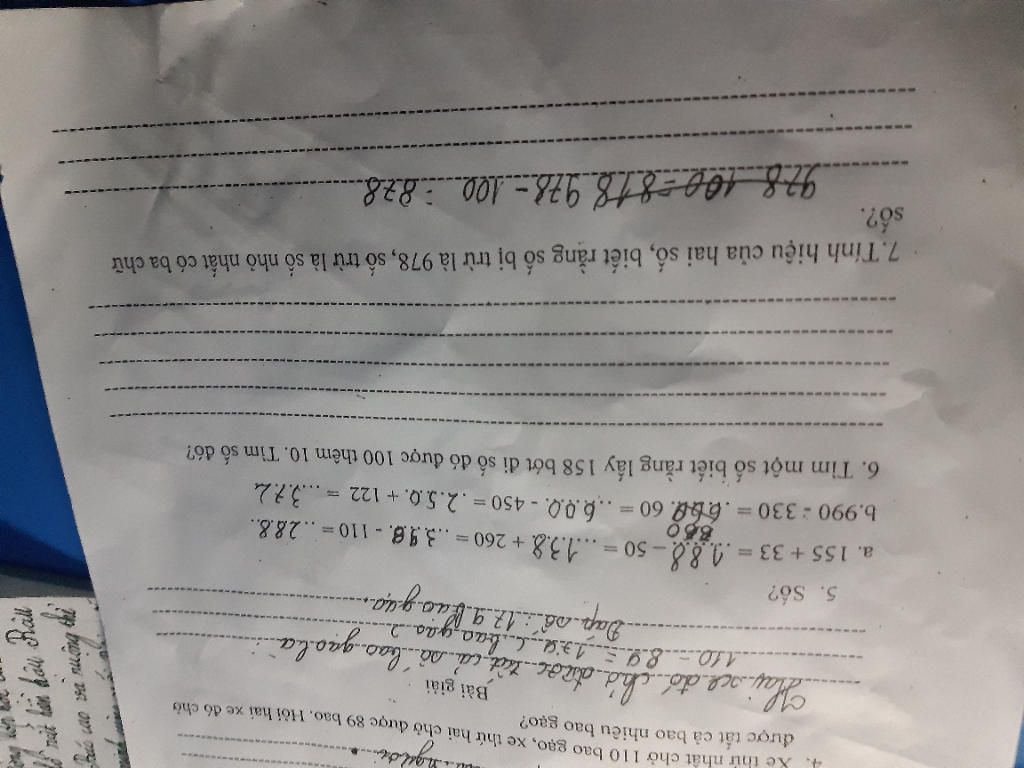 người
4. Xe thứ nhất chở 110 bao gạo, xe thứ hai chở được 89 bao. Hỏi hai xe đó chở
được tất cả bao nhiêu bao gạo?
Bài giải
Hay xe đó chở được tất cả số bao gạo là:
110 - 89 = 179 ( bao gạo )
Đáp số: 179 bao gạo.
5. Số?
a. 155 + 33 = 188 – 50 = 138 + 260 = 398 - 110 = 288
b.990 - 330 = 660 60 = 600 - 450 = 250 + 122 = 372
6. Tìm một số biết rằng lấy 158 bớt đi số đó được 100 thêm 10. Tìm số đó?
7.Tính hiệu của hai số, biết rằng số bị trừ là 978, số trừ là số nhỏ nhất có ba chữ
số?.
978 - 100 = 818 978 - 100 = 878